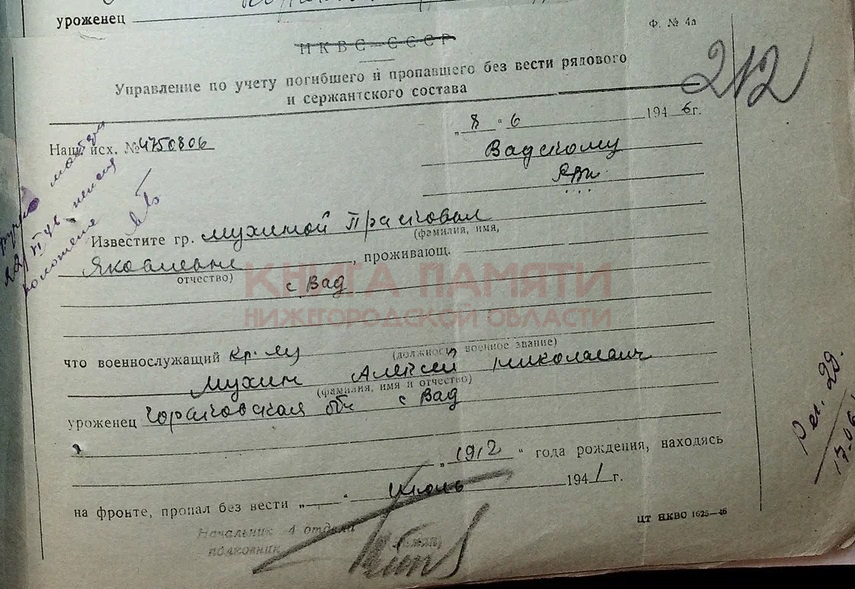 уроженец
Ф. № 4а
НКВС—СССР
212
Управление по учету погибшего и пропавшего без вести рядового
и сержантского состава
„8“ 6 1946г.
Наш исх. №4750806
Вадскому
РВК
Известите гр. Мухиной Прасковьи
(фамилия, имя,
Яковлевне, проживающ.
отчество)
с Вад
КНИГА ПАМЯТИ
НИЖЕГОРОДСКОЙ ОБЛАСТИ
что военнослужащий кр-ец
(должность военное звание)
Мухин Алексей Николаевич
(фамилия, имя и отчество)
уроженец Горьковская обл с Вад
„1912“ года рождения, находясь
на фронте, пропал без вести „ “ июль 1941г.
Начальник 4 отдела
полковник
ЦТ НКВС 1625—46